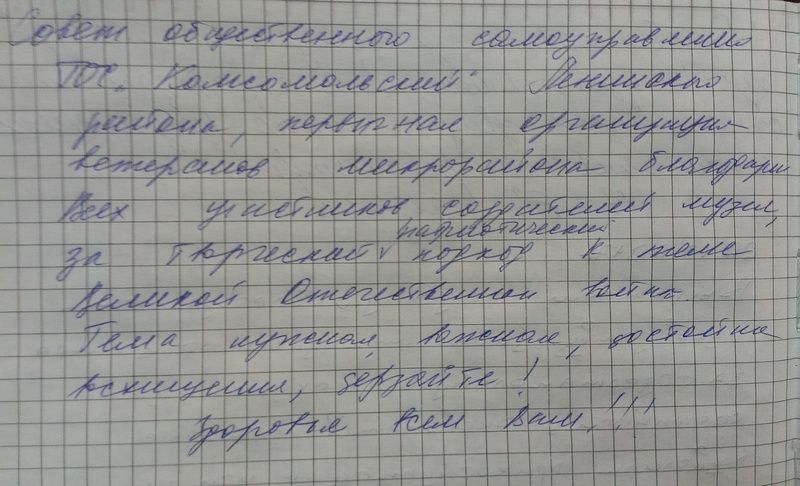 Совет общественного самоуправления
ТОС "Комсомольский" Ленинского
района, первичная организация
ветеранов микрорайона благодарит
Всех участников создателей музея,
патриотический
за творческий подход к теме
Великой Отечественной войны.
Тема нужная, важная, достойна
восхищения, дерзайте!
Здоровья Всем Вам!!!